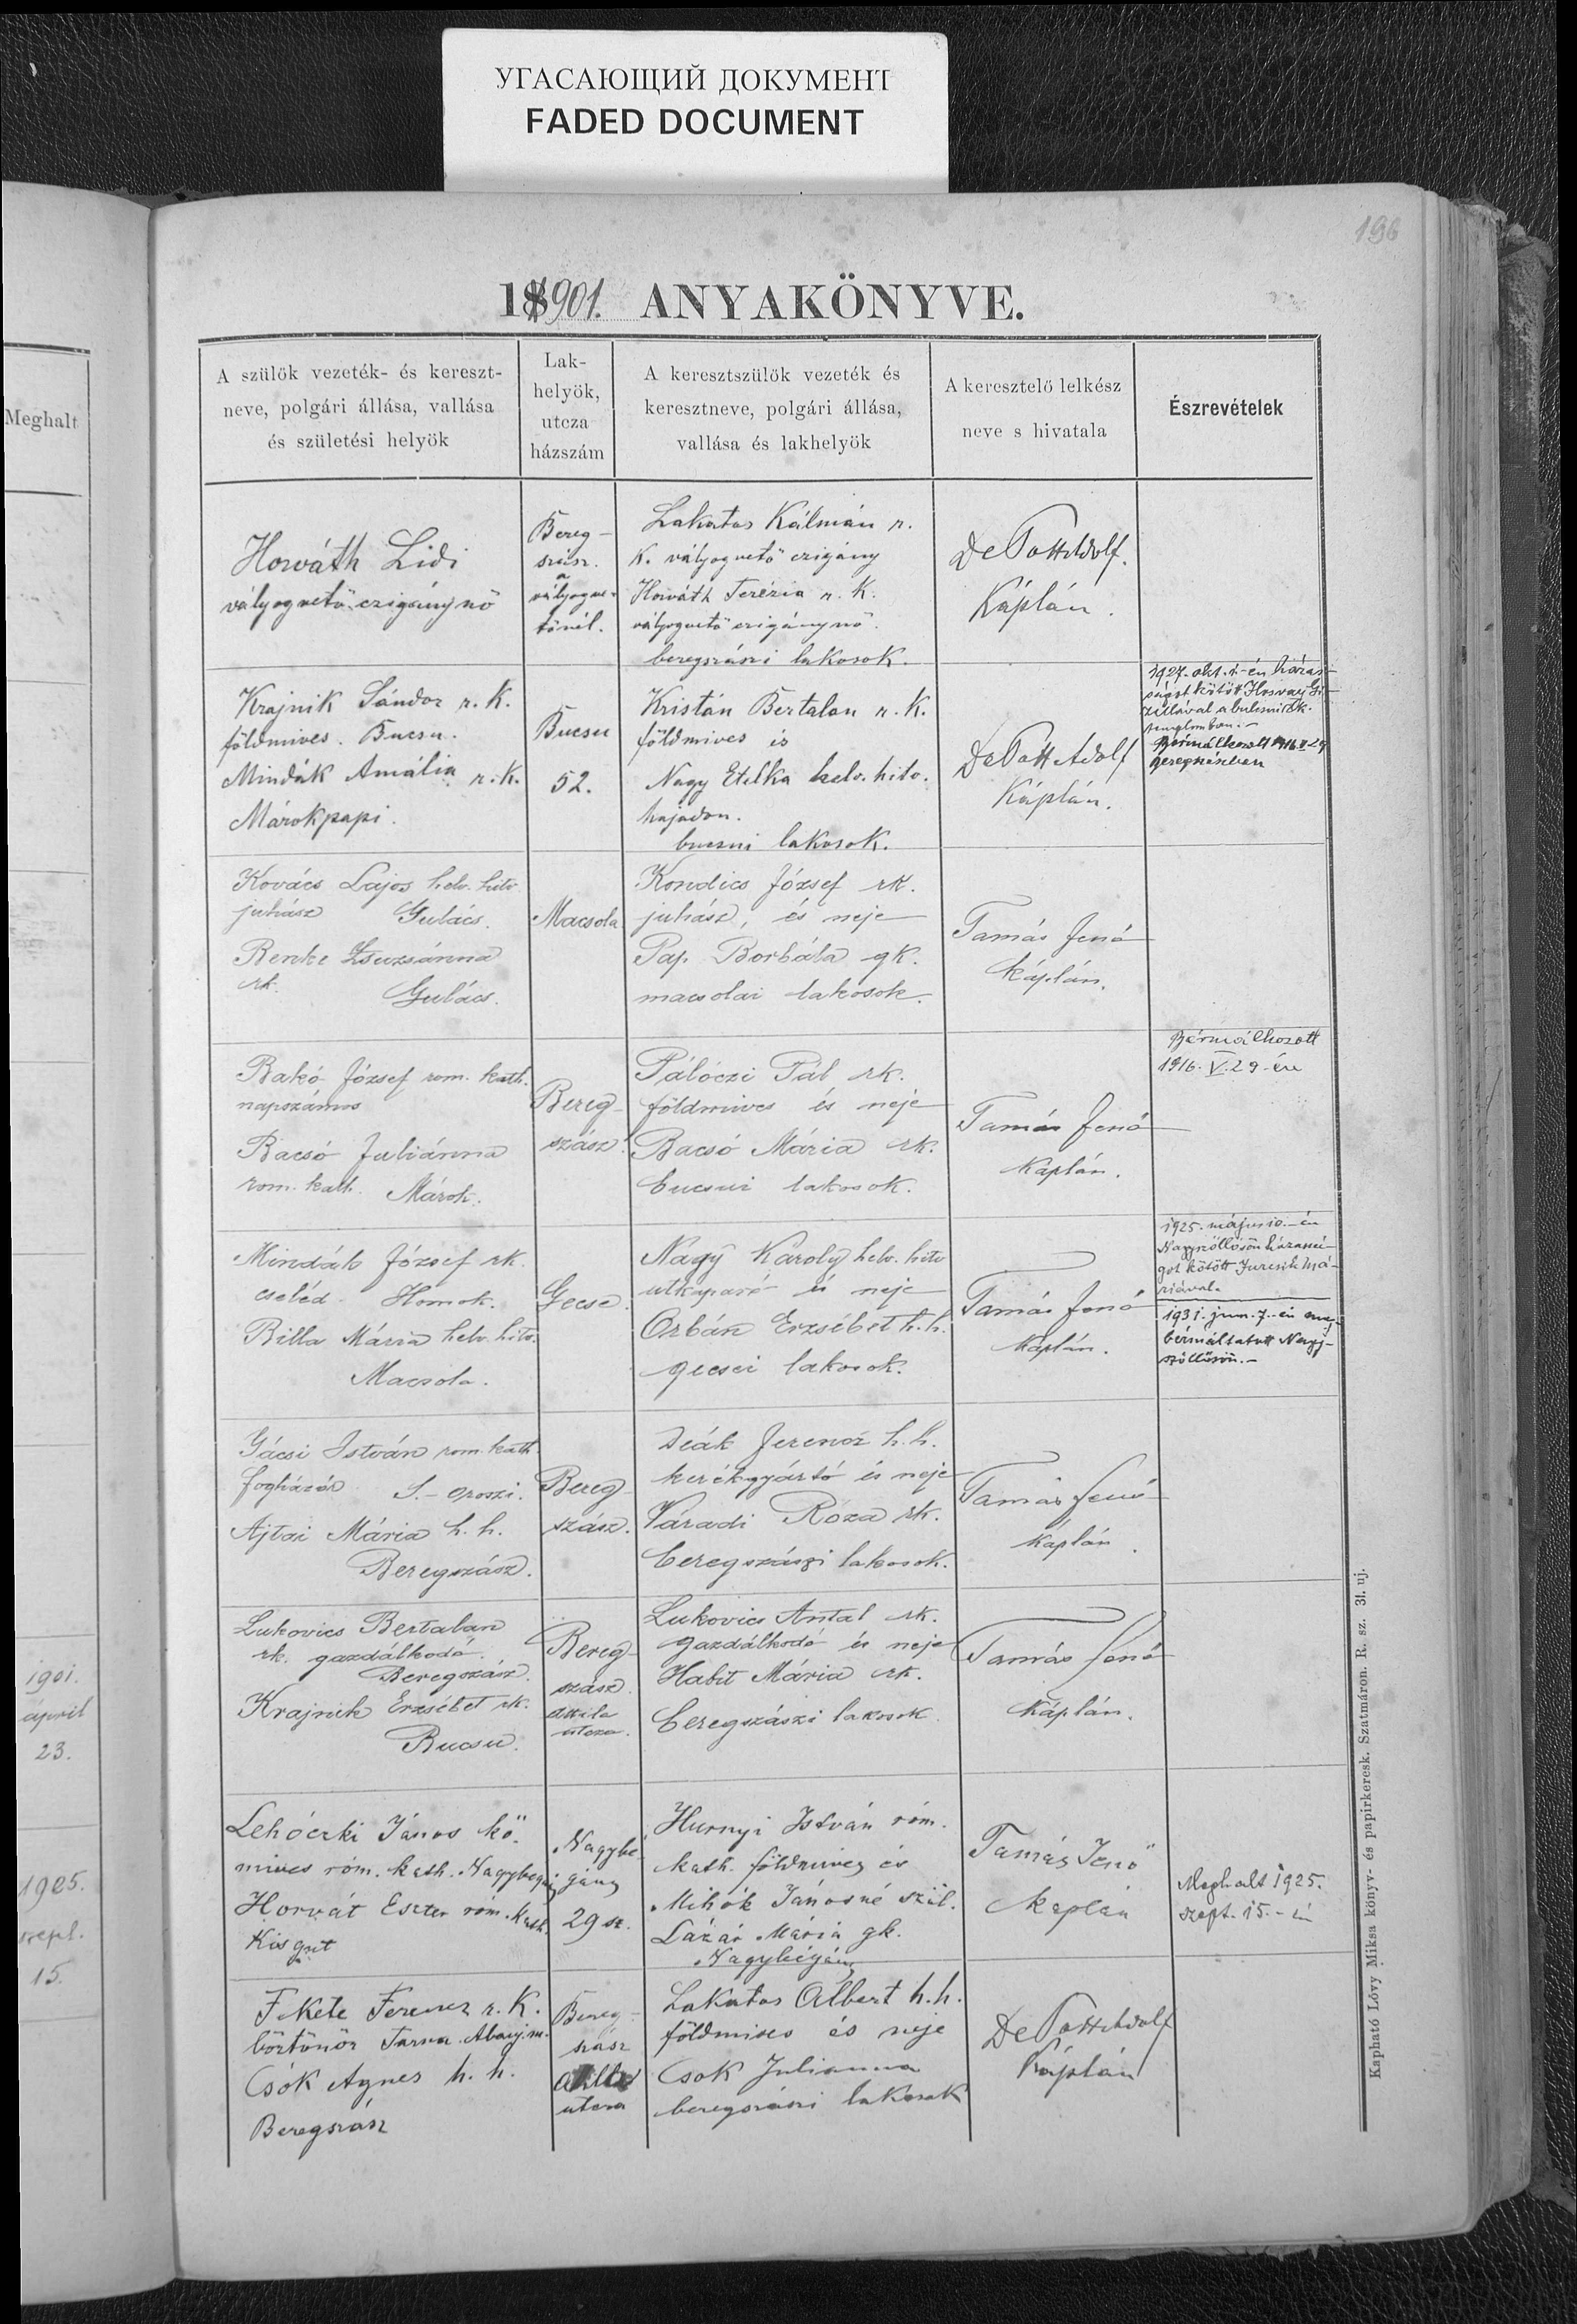 УГАСАЮЩИЙ ДОКУМЕНТ
FADED DOCUMENT
196
1901. ANYAKÖNYVE.
Meghalt
A szülők vezeték- és kereszt-
neve, polgári állása, vallása
és születési helyök
Lak-
helyök,
utcza
házszám
A keresztszülők vezeték és
keresztneve, polgári állása,
vallása és lakhelyök
A keresztelő lelkész
neve s hivatala
Észrevételek
Horváth Lidi
vályogvető czigánynő
Bereg-
szász.
a
vályogve-
tőnél.
Lakatos Kálmán r.
K. vályogvető czigány
Horváth Terézia r. K.
vályogvető czigánynő.
beregszászi lakosok.
De Pott Adolf.
Káplán.
Krajnik Sándor r. K.
földmives. Bucsu.
Mindák Amália r. K.
Márokpapi.
Bucsu
52.
Kristán Bertalan r. K.
földmives és
Nagy Etelka helv. hitv.
hajadon.
bucsui lakosok.
De Pott Adolf
Káplán.
1927. okt. 1-én házas-
ságot kötött Hosvay Gi-
zellával a bulcsui r. k.
templomban.-
Bérmálkozott 1916. V 29
Beregszászban
Kovács Lajos helv. hitv.
juhász Gulács.
Renke Zsuzsánna
rk. Gulács.
Macsola
Kondics József rk.
juhász, és neje
Pap Borbála gk.
macsolai lakosok.
Tamás Jenő
káplán.
Bakó József rom. kath.
napszámos
Bacsó Juliánna
rom. kath. Márok.
Bereg-
szász.
Pálóczi Pál rk.
földmives és neje
Bacsó Mária rk.
bucsui lakosok.
Tamás Jenő
Káplán.
Bérmálkozott
1916. V. 29-én
Mindák József rk.
cseléd. Homok.
Billa Mária helv. hitv.
Macsola.
Gecse.
Nagy Károly helv. hitv
utkaparó és neje
Orbán Erzsébet h. h.
gecsei lakosok.
Tamás Jenő
Káplán.
1925. május 10.-én
Nagyszöllősön házassá-
got kötött Jurcsik Má-
riával.
1931. jun. 7.-én meg-
bérmáltatott Nagy-
szöllősön.-
Gácsi István rom. kath.
fogházőr S.-oroszi.
Ajtai Mária h. h.
Beregszász.
Bereg-
szász.
Deák Ferencz h. h.
kerékgyártó és neje
Váradi Róza rk.
beregszászi lakosok.
Tamás Jenő
káplán.
Lukovics Bertalan
rk. gazdálkodó.
Beregszász.
Krajnik Erzsébet rk.
Bucsu.
Bereg-
szász.
Attila
utcza.
Lukovics Antal rk.
gazdálkodó és neje
Habit Mária rk.
beregszászi lakosok
Tamás Jenő
Káplán.
Lehóczki János kő-
mives róm. kath. Nagybegány
Horvát Eszter róm. kath.
Kisgut
Nagybé-
gány
29 sz.
Hurnyi István róm.
kath. földmives és
Mihók Jánosné szül.
Lázár Mária gk.
Nagybégány
Tamás Jenő
káplán
Meghalt 1925.
szept. 15.-én
Fekete Ferencz r. K.
börtönőr Tarna Abauj m.
Csók Agnes h. h.
Beregszász
Bereg-
szász
Attila
utcza
Lakatos Albert h. h.
földmives és neje
Csok Julianna
beregszászi lakosok
De Pott Adolf
Káplán
1901.
április
23.
1925.
szept.
15.
Kapható Lővy Miksa könyv- és papirkeresk. Szatmáron. R. sz. 31. uj.